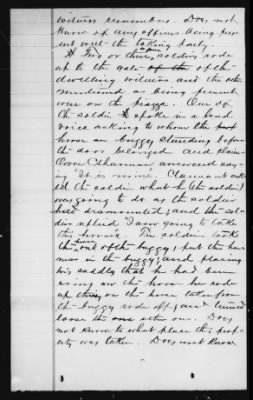 witness remembers. Does not
know of any officers being pres-
ent with the taking party.
Two or three soldiers rode
up to the gate of the
dwelling witness and the others
mentioned as being present
were on the piazza. One of
the soldiers spoke in a loud
voice asking to whom the
horse an buggy standing before
the door belonged and
Owen answered say-
ing "It is mine". Claimant ask-
ed the soldier what he (the soldier)
was going to do as the soldier
had dismounted, and the sol-
dier replied I am going to take
this horse. The soldier took
the horse out of the buggy, put the har-
ness in the buggy, and placing
his saddle that he had been
using on the horse he rode
up on the horse taken from
the buggy rode off, and turned
loose the one. Does
not know to what place this prop-
erty was taken. Does not know